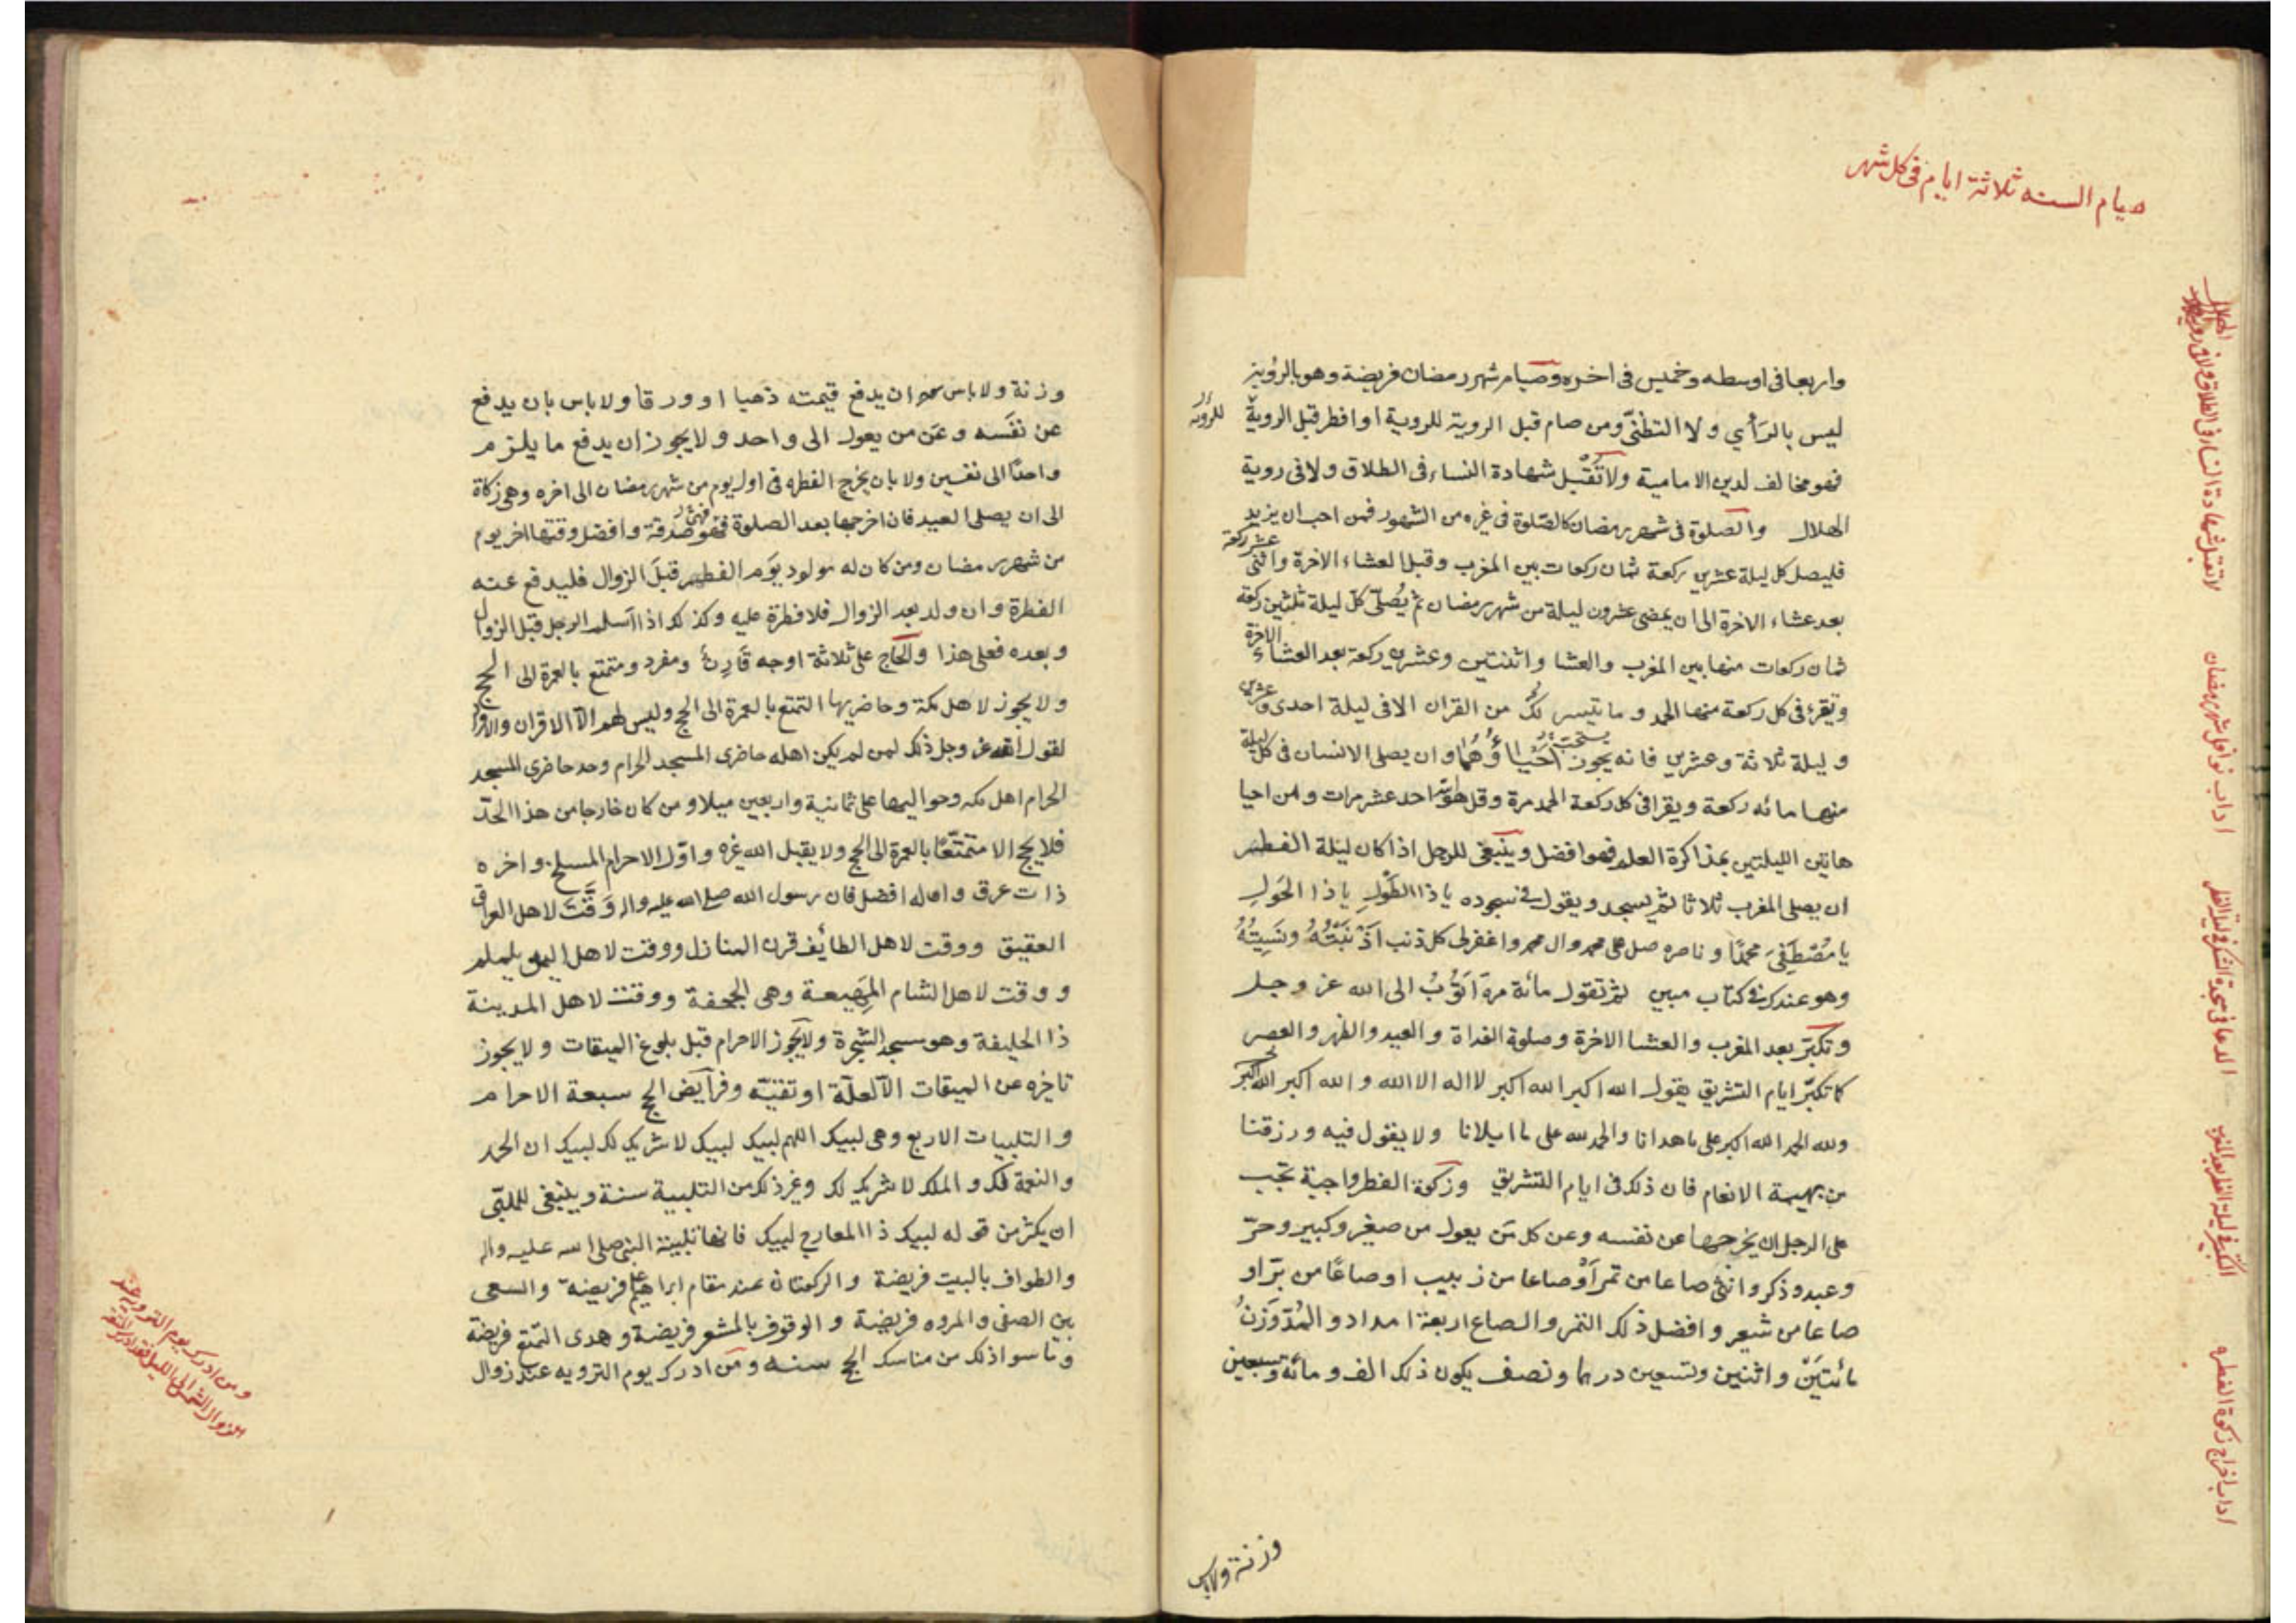 صيام السنه ثلاثة ايام فى كل شهر
واربعا فى اوسطه وخميس فى اخره وصيام شهر رمضان فريضة وهو بالرؤية
ليس بالرأي ولا التظنّى ومن صام قبل الروية للروية او افطر قبل الروية
للروية
فهو مخالف لدين الامامية ولا تقبل شهادة النساء فى الطلاق ولا فى روية
الهلال والصلوة فى شهر رمضان كالصلوة فى غيره من الشهور فمن احب ان يزيد
فليصل كل ليلة عشرين ركعة ثمان ركعات بين المغرب وقبل العشاء الاخرة واثنى عشر ركعة
بعد عشاء الاخرة الى ان يمضى عشرون ليلة من شهر رمضان ثم يُصلّى كلّ ليلة ثلثين ركعة
ثمان ركعات منها بين المغرب والعشا واثنتين وعشرين ركعة بعد العشاء الاخرة
ويقرء فى كل ركعة منها الحمد وما تيسر لك من القران الا فى ليلة احدى وعشرين
وليلة ثلاثة وعشرين فانه يستحب احياؤهما وان يصلى الانسان فى كل ليلة
منها مائه ركعة ويقرا فى كل ركعة الحمد مرة وقل هو الله احد عشر مرات ومن احيا
هاتين الليلتين بمذاكرة العلم فهو افضل وينبغى للرجل اذا كان ليلة الفطر
ان يصلى المغرب ثلاثا ثم يسجد ويقول فى سجوده يا ذا الطَّوْلِ يا ذا الحَولِ
يا مُصْطَفِىَ محمدًا وناصره صل على محمد وال محمد واغفر لى كل ذنب اَذْنَبْتُهُ ونَسِيتُهُ
وهو عندك فى كتاب مبين ثم تقول مائة مرة اَتُوْبُ الى الله عز وجل
وتكبّر بعد المغرب والعشا الاخرة وصلوة الغداة والعيد والظهر والعصر
كما تكبّر ايام التشريق يقول الله اكبر الله اكبر لا اله الا الله والله اكبر الله اكبر
ولله الحمد الله اكبر على ما هدانا والحمد لله على ما ابلانا ولا يقول فيه ورزقنا
من بهيمة الانعام فان ذلك فى ايام التشريق وزكوة الفطر واجبة تجب
على الرجل ان يخرجها عن نفسه وعن كل مَن يعول من صغير وكبير وحرّ
وعبد وذكر وانثى صاعا من تمر اَوْ صاعا من زبيب او صاعًا من برّ او
صاعا من شعير وافضل ذلك التمر والصاع اربعة امداد والمُدّ وَزنُ
مائتيَنْ واثنين وتسعين درهما ونصف يكون ذلك الف ومائة وسبعين
وزنة ولاباس
لا تقبل شهادة النساء فى الطلاق ولا فى روية الهلال
اداب نوافل شهر رمضان
الدعا فى سجدة الشكر فى ليلة الفطر
التكبير فى ليلة الفطر بعد المغرب
اداب اخراج زكوة الفطره
وزنة ولا باس ان يدفع قيمته ذهبا او ورقا ولا باس بان يدفع
عن نفَسه وعَن من يعول الى واحد ولا يجوز ان يدفع ما يلزم
واحدًا الى نفسين ولا بان يخرج الفطره فى اول يوم من شهر رمضان الى اخره وهى زكاة
الى ان يصلى العيد فان اخرجها بعد الصلوة فهو صدقة وافضل وقتها اخر يوم
من شهر رمضان ومن كان له مولود يوَم الفطر قبلَ الزوال فليدفع عنه
الفطرة وان ولد بعد الزوال فلا فطرة عليه وكذلك اذا اسلم الرجل قبل الزوال
وبعده فعلى هذا والحاج على ثلاثة اوجه قَارِنٌ ومفرد ومتمتع بالعمرة الى الحج
ولا يجوز لاهل مكة وحاضريها التمتع بالعمرة الى الحج وليس لهم الا الاقران والافراد
لقول الله عز وجل ذلك لمن لم يكن اهله حاضرى المسجد الحرام وحد حاضرى المسجد
الحرام اهل مكه وحواليها على ثمانية واربعين ميلا ومن كان خارجا من هذا الحدّ
فلا يحج الا متمتّعًا بالعمرة الى الحج ولا يقبل الله غيره واوّل الاحرام المسلح واخره
ذات عرق واوله افضل فان رسول الله صلى الله عليه واله وَقَّتَ لاهل العراق
العقيق ووقت لاهل الطائف قرن المنازل ووقت لاهل اليمن يلملم
ووقت لاهل الشام المَهِيعة وهى الجحفة ووقت لاهل المدينة
ذا الحليفة وهو مسجد الشجرة ولا يجوز الاحرام قبل بلوغ الميقات ولا يجوز
تاخيره عن الميقات الّا لعلّة او تقيّه وفرآيض الحج سبعة الاحرام
والتلبيات الاربع وهى لبيك اللهم لبيك لبيك لا شريك لك لبيك ان الحمد
والنعمة لك والملك لا شريك لك وغير ذلك من التلبية سنة وينبغى للملبّى
ان يكثر من قوله لبيك ذا المعارج لبيك فانها تلبية النبى صلى الله عليه واله
والطواف بالبيت فريضة والركعتان عند مقام ابراهيم فريضة والسعى
بين الصفى والمروه فريضة والوقوف بالمشعر فريضة وهدى التمتع فريضة
وما سوا ذلك من مناسك الحج سنه ومن ادرك يوم الترويه عند زوال
ومن ادرك يوم الترويه عند
زوال الشمس الى الليل فقد ادرك المتعة